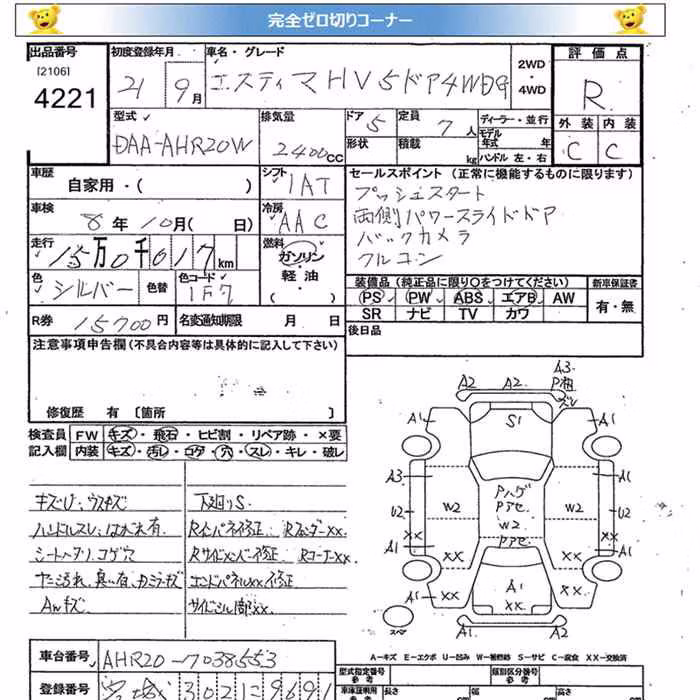 完全ゼロ切りコーナー
出品番号 初度登録年月 車名・グレード 2WD・4WD 評価点
[2106]
4221 21 9月 エスティマHV 5ドア 4WD G R
型式 排気量 ドア 定員 ディーラー・並行 外装 内装
DAA-AHR20W 2400cc 5 7人 モデル年式 年 C C
形状 積載 kg ハンドル 左・右
車歴 シフト セールスポイント (正常に機能するものに限ります)
自家用・( ) IAT プッシュスタート
車検 冷房 両側パワースライドドア
8年10月( 日) AAC バックカメラ
走行 燃料 フルコン
15万0千617km ガソリン・軽油・( )
色 色コード 装備品 (純正品に限り○をつけてください) 新車保証書
シルバー 色替 1F7 PS PW ABS エアB AW 有・無
SR ナビ TV カワ
R券 15700円 名変通知期限 月 日 後日品
注意事項申告欄(不具合内容等は具体的に記入して下さい)
修復歴 有 〔箇所 〕
検査員 FW キズ・飛石・ヒビ割・リペア跡・×要
記入欄 内装 キズ・汚レ・コゲ・穴・スレ・キレ・破レ
キズU、ウスキズ 下廻りS
ハンドルスレ、はがれ有 Rインパネ修正、Rフェンダーxx、
シートヘタリ、コゲ穴 Rサイドメンバー修正、Rコーナーxx、
エンドパネルxx、修正
AWキズ サイドシル部xx、
A3
A2 A2 P相
ズレ
A1 S1 A1
A3 Pハゲ A1
Pアセ
U2 W2 W2 W2 U2
Pアセ
A1 XX XX A1
A1 XX A1 XX A1
XX
スペア A1 A2
A=キズ E=エクボ U=凹み W=補修跡 S=サビ C=腐食 XX=交換済
車台番号 AHR20-7038553
登録番号 宮城 302 9691
型式指定番号 参考 類別区分番号 参考
車庫証明用 参考 長さ cm 幅 cm 高さ cm